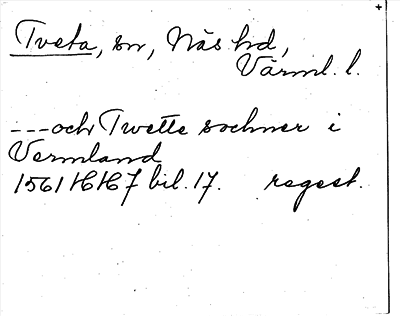 Tveta, sn, Näs hd,
Värml. l.
---och Twette sochner i
Vermland
1561 HH 7 bil. 17. regest.